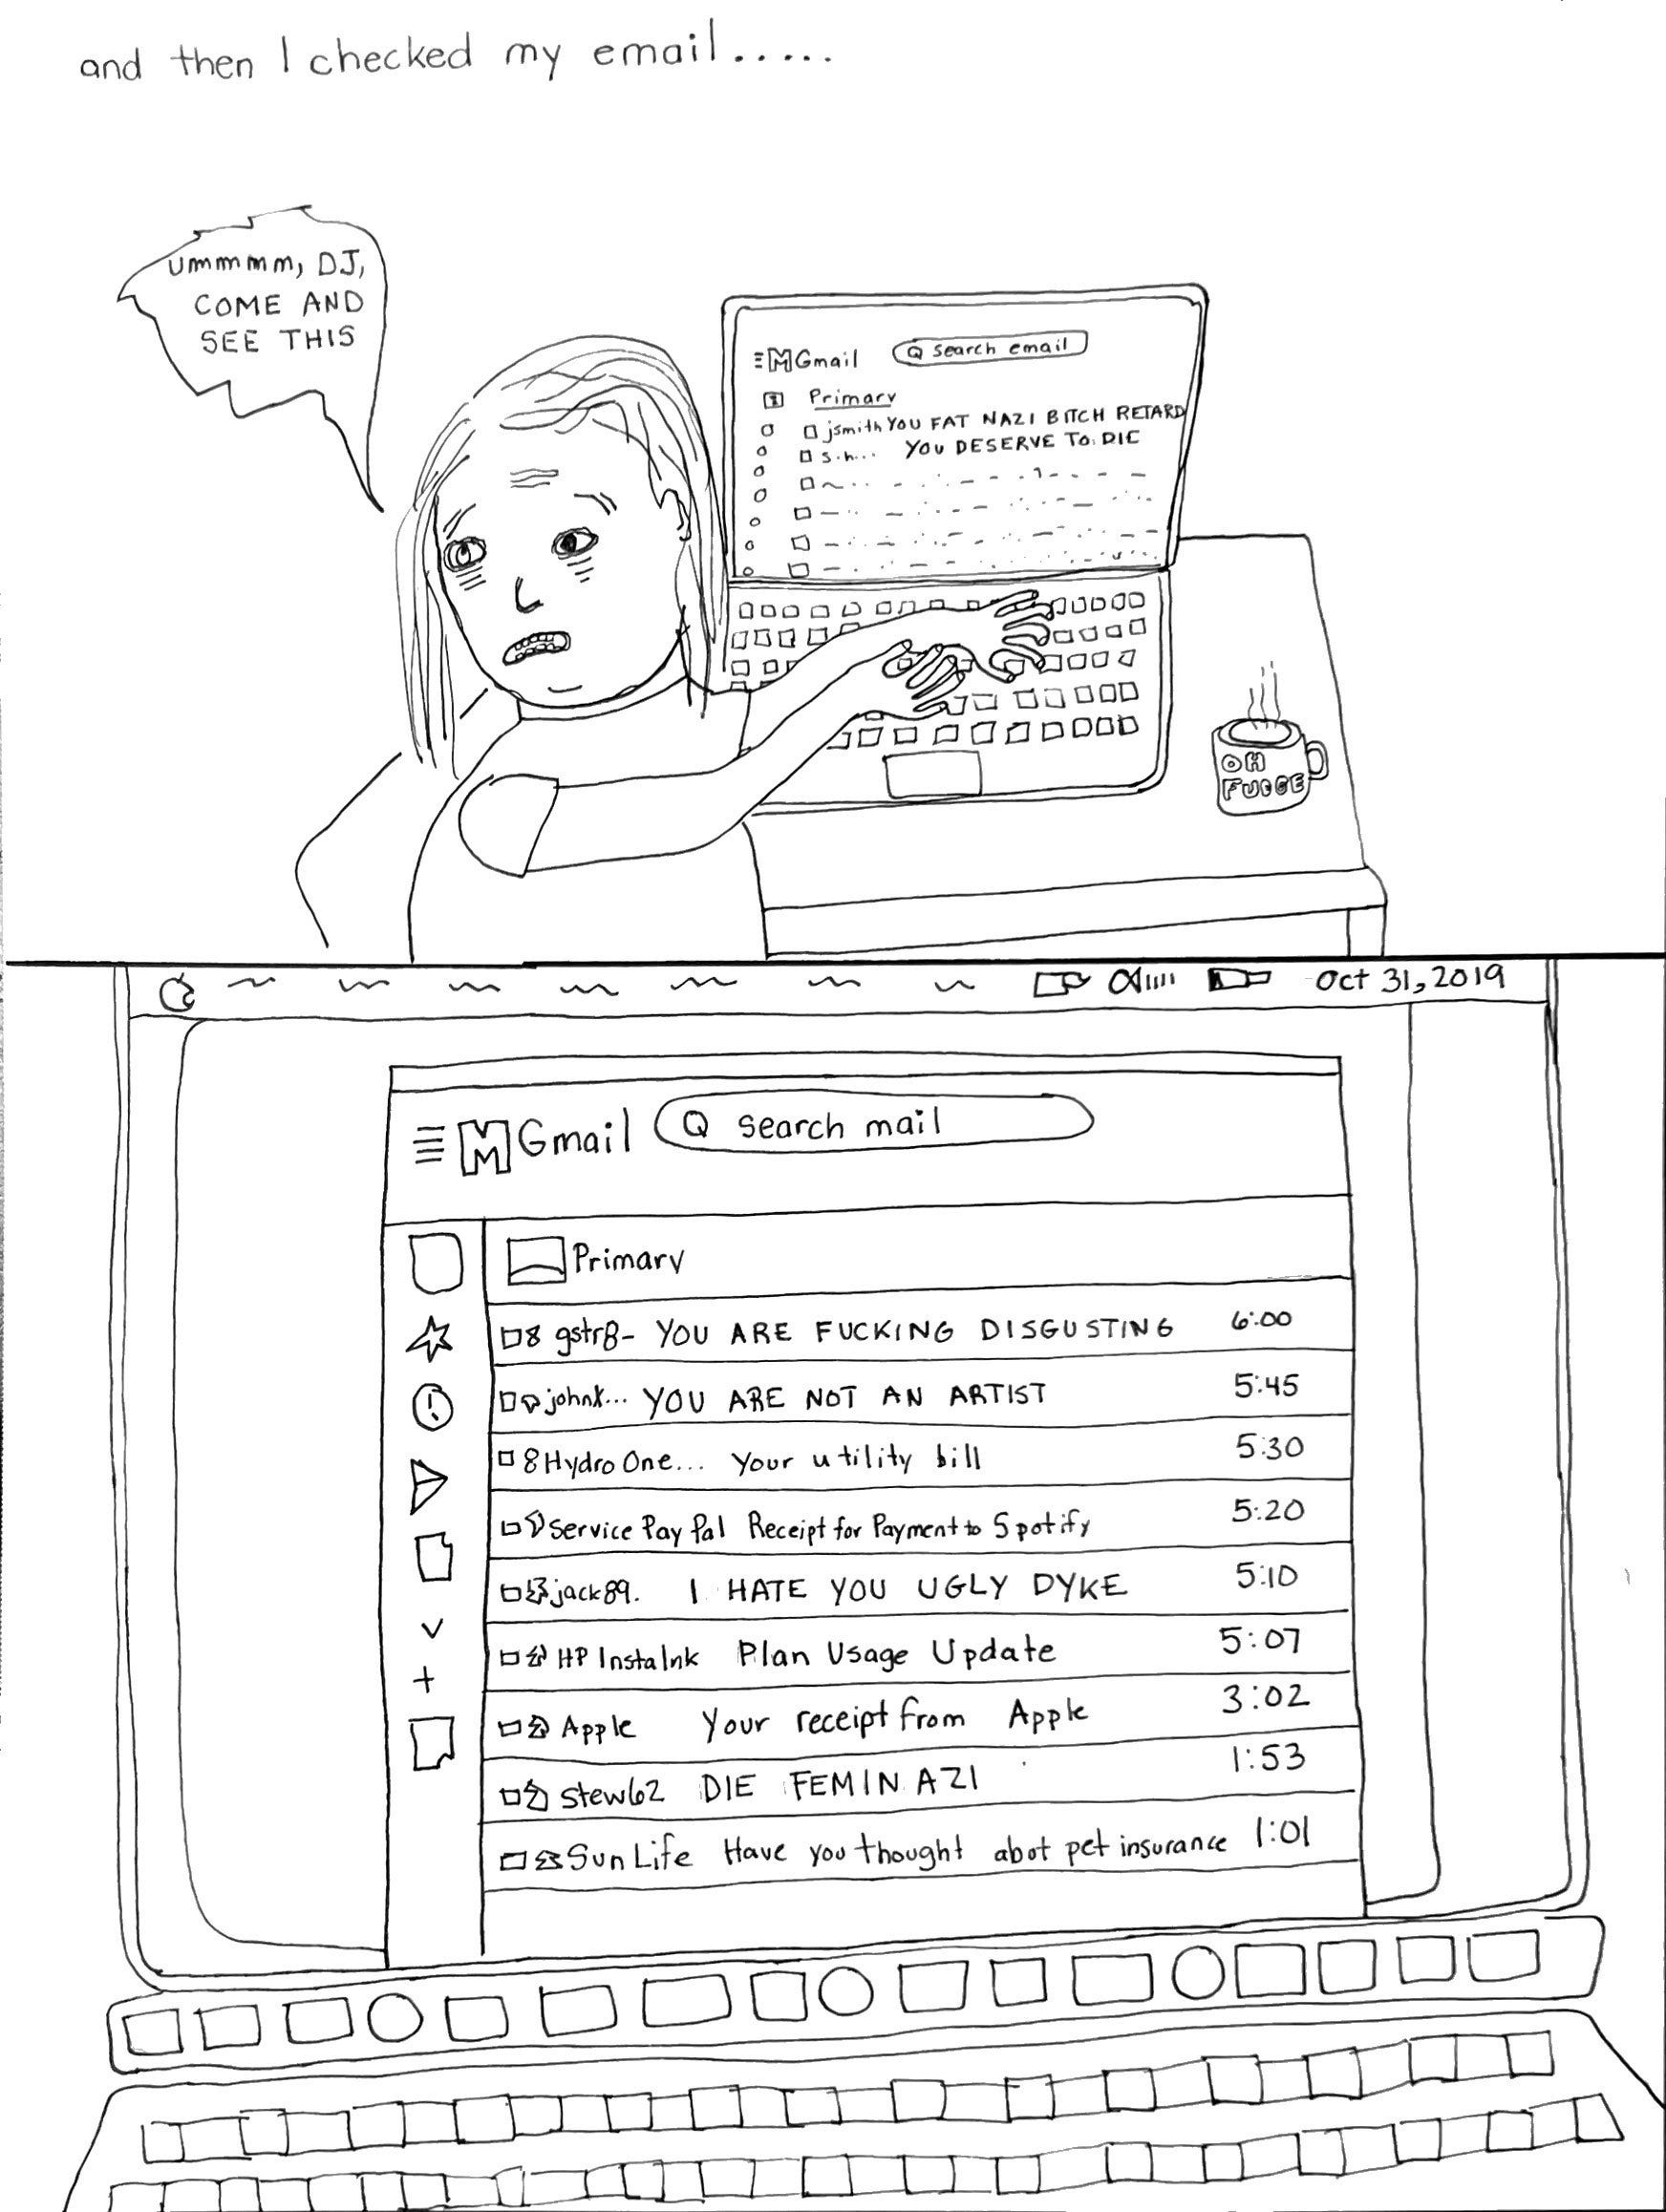 and then I checked my email.....
ummmm, DJ,
COME AND
SEE THIS
Gmail search email
Primary
jsmith YOU FAT NAZI BITCH RETARD
s.h... YOU DESERVE TO DIE
OH
FUDGE
Oct 31, 2019
Gmail search mail
Primary
gstr8- YOU ARE FUCKING DISGUSTING 6:00
johnx... YOU ARE NOT AN ARTIST 5:45
Hydro One... Your utility bill 5:30
service PayPal Receipt for Payment to Spotify 5:20
jack89. I HATE YOU UGLY DYKE 5:10
HP InstaInk Plan Usage Update 5:07
Apple Your receipt from Apple 3:02
stew62 DIE FEMINAZI 1:53
Sun Life Have you thought abot pet insurance 1:01